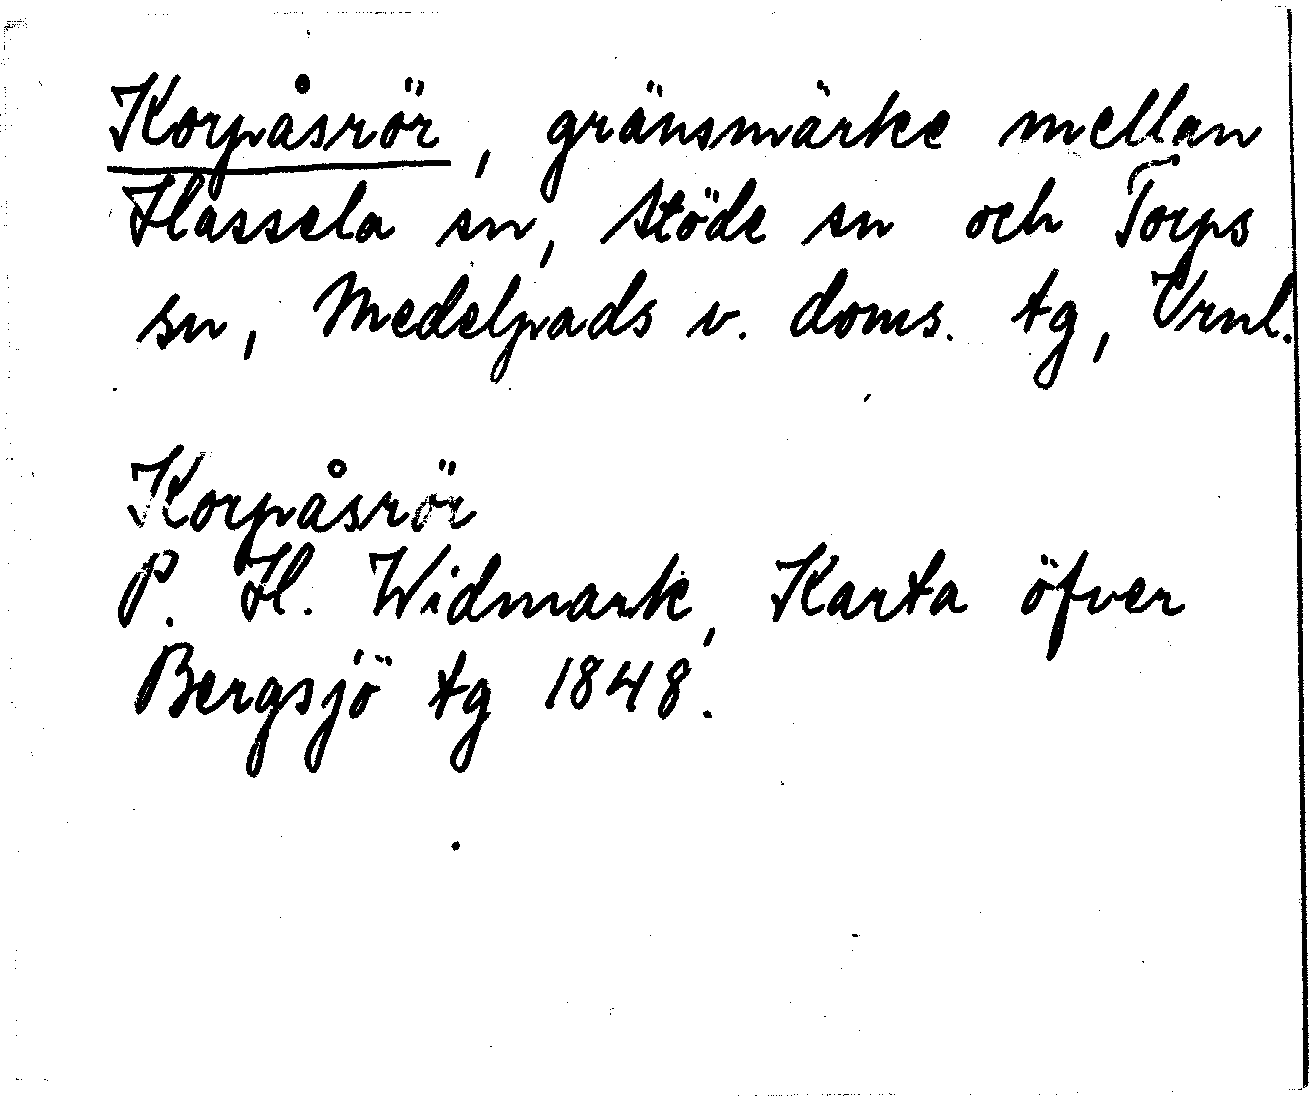 Korpåsrör, gränsmärke mellan
Hassela sn, Stöde sn och Torps
sn, Medelpads v. doms. tg, Vrnl.
Korpåsrör
P. H. Widmark, Karta öfver
Bergsjö tg 1848.